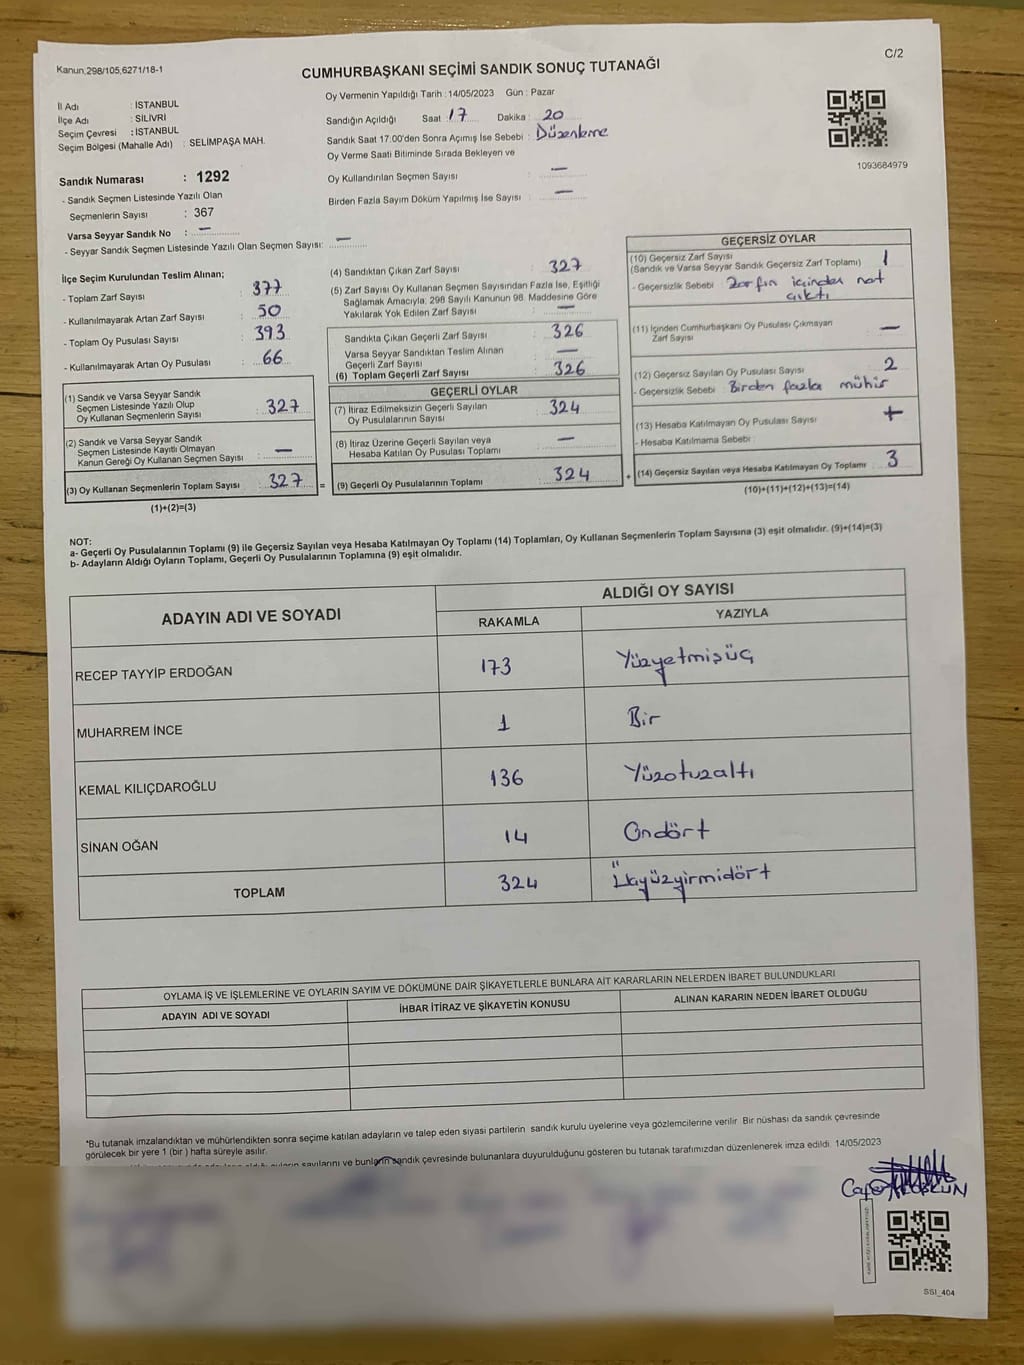 Kanun;298/105,6271/18-1
C/2
CUMHURBAŞKANI SEÇİMİ SANDIK SONUÇ TUTANAĞI
İl Adı : İSTANBUL
İlçe Adı : SİLİVRİ
Seçim Çevresi : İSTANBUL
Seçim Bölgesi (Mahalle Adı) : SELİMPAŞA MAH.
Sandık Numarası : 1292
- Sandık Seçmen Listesinde Yazılı Olan
Seçmenlerin Sayısı : 367
Varsa Seyyar Sandık No : —
- Seyyar Sandık Seçmen Listesinde Yazılı Olan Seçmen Sayısı: —
Oy Vermenin Yapıldığı Tarih : 14/05/2023 Gün : Pazar
Sandığın Açıldığı Saat : 17 Dakika : 20
Sandık Saat 17.00'den Sonra Açımış İse Sebebi : Düzenleme
Oy Verme Saati Bitiminde Sırada Bekleyen ve
Oy Kullandırılan Seçmen Sayısı : —
Birden Fazla Sayım Döküm Yapılmış İse Sayısı : —
1093684979
İlçe Seçim Kurulundan Teslim Alınan;
- Toplam Zarf Sayısı : 377
- Kullanılmayarak Artan Zarf Sayısı : 50
- Toplam Oy Pusulası Sayısı : 393
- Kullanılmayarak Artan Oy Pusulası : 66
(1) Sandık ve Varsa Seyyar Sandık
Seçmen Listesinde Yazılı Olup
Oy Kullanan Seçmenlerin Sayısı : 327
(2) Sandık ve Varsa Seyyar Sandık
Seçmen Listesinde Kayıtlı Olmayan
Kanun Gereği Oy Kullanan Seçmen Sayısı : —
(3) Oy Kullanan Seçmenlerin Toplam Sayısı : 327 =
(1)+(2)=(3)
(4) Sandıktan Çıkan Zarf Sayısı : 327
(5) Zarf Sayısı Oy Kullanan Seçmen Sayısından Fazla İse, Eşitliği
Sağlamak Amacıyla; 298 Sayılı Kanunun 98. Maddesine Göre
Yakılarak Yok Edilen Zarf Sayısı : —
Sandıkta Çıkan Geçerli Zarf Sayısı : 326
Varsa Seyyar Sandıktan Teslim Alınan
Geçerli Zarf Sayısı : —
(6) Toplam Geçerli Zarf Sayısı : 326
GEÇERLİ OYLAR
(7) İtiraz Edilmeksizin Geçerli Sayılan
Oy Pusulalarının Sayısı : 324
(8) İtiraz Üzerine Geçerli Sayılan veya
Hesaba Katılan Oy Pusulası Toplamı : —
(9) Geçerli Oy Pusulalarının Toplamı : 324 +
GEÇERSİZ OYLAR
(10) Geçersiz Zarf Sayısı
(Sandık ve Varsa Seyyar Sandık Geçersiz Zarf Toplamı) : 1
- Geçersizlik Sebebi : Zarfın içinden not
çıktı
(11) İçinden Cumhurbaşkanı Oy Pusulası Çıkmayan
Zarf Sayısı —
(12) Geçersiz Sayılan Oy Pusulası Sayısı : 2
- Geçersizlik Sebebi : Birden fazla mühür
(13) Hesaba Katılmayan Oy Pusulası Sayısı
- Hesaba Katılmama Sebebi :
(14) Geçersiz Sayılan veya Hesaba Katılmayan Oy Toplamı : 3
(10)+(11)+(12)+(13)=(14)
NOT:
a- Geçerli Oy Pusulalarının Toplamı (9) ile Geçersiz Sayılan veya Hesaba Katılmayan Oy Toplamı (14) Toplamları, Oy Kullanan Seçmenlerin Toplam Sayısına (3) eşit olmalıdır. (9)+(14)=(3)
b- Adayların Aldığı Oyların Toplamı, Geçerli Oy Pusulalarının Toplamına (9) eşit olmalıdır.
ADAYIN ADI VE SOYADI
ALDIĞI OY SAYISI
RAKAMLA YAZIYLA
RECEP TAYYİP ERDOĞAN 173 Yüzyetmişüç
MUHARREM İNCE 1 Bir
KEMAL KILIÇDAROĞLU 136 Yüzotuzaltı
SİNAN OĞAN 14 Ondört
TOPLAM 324 Üçyüzyirmidört
OYLAMA İŞ VE İŞLEMLERİNE VE OYLARIN SAYIM VE DÖKÜMÜNE DAİR ŞİKAYETLERLE BUNLARA AİT KARARLARIN NELERDEN İBARET BULUNDUKLARI
ADAYIN ADI VE SOYADI İHBAR İTİRAZ VE ŞİKAYETİN KONUSU ALINAN KARARIN NEDEN İBARET OLDUĞU
*Bu tutanak imzalandıktan ve mühürlendikten sonra seçime katılan adayların ve talep eden siyasi partilerin sandık kurulu üyelerine veya gözlemcilerine verilir. Bir nüshası da sandık çevresinde
görülecek bir yere 1 (bir ) hafta süreyle asılır.
sayılarını ve bunların sandık çevresinde bulunanlara duyurulduğunu gösteren bu tutanak tarafımızdan düzenlenerek imza edildi. 14/05/2023
SSI_404